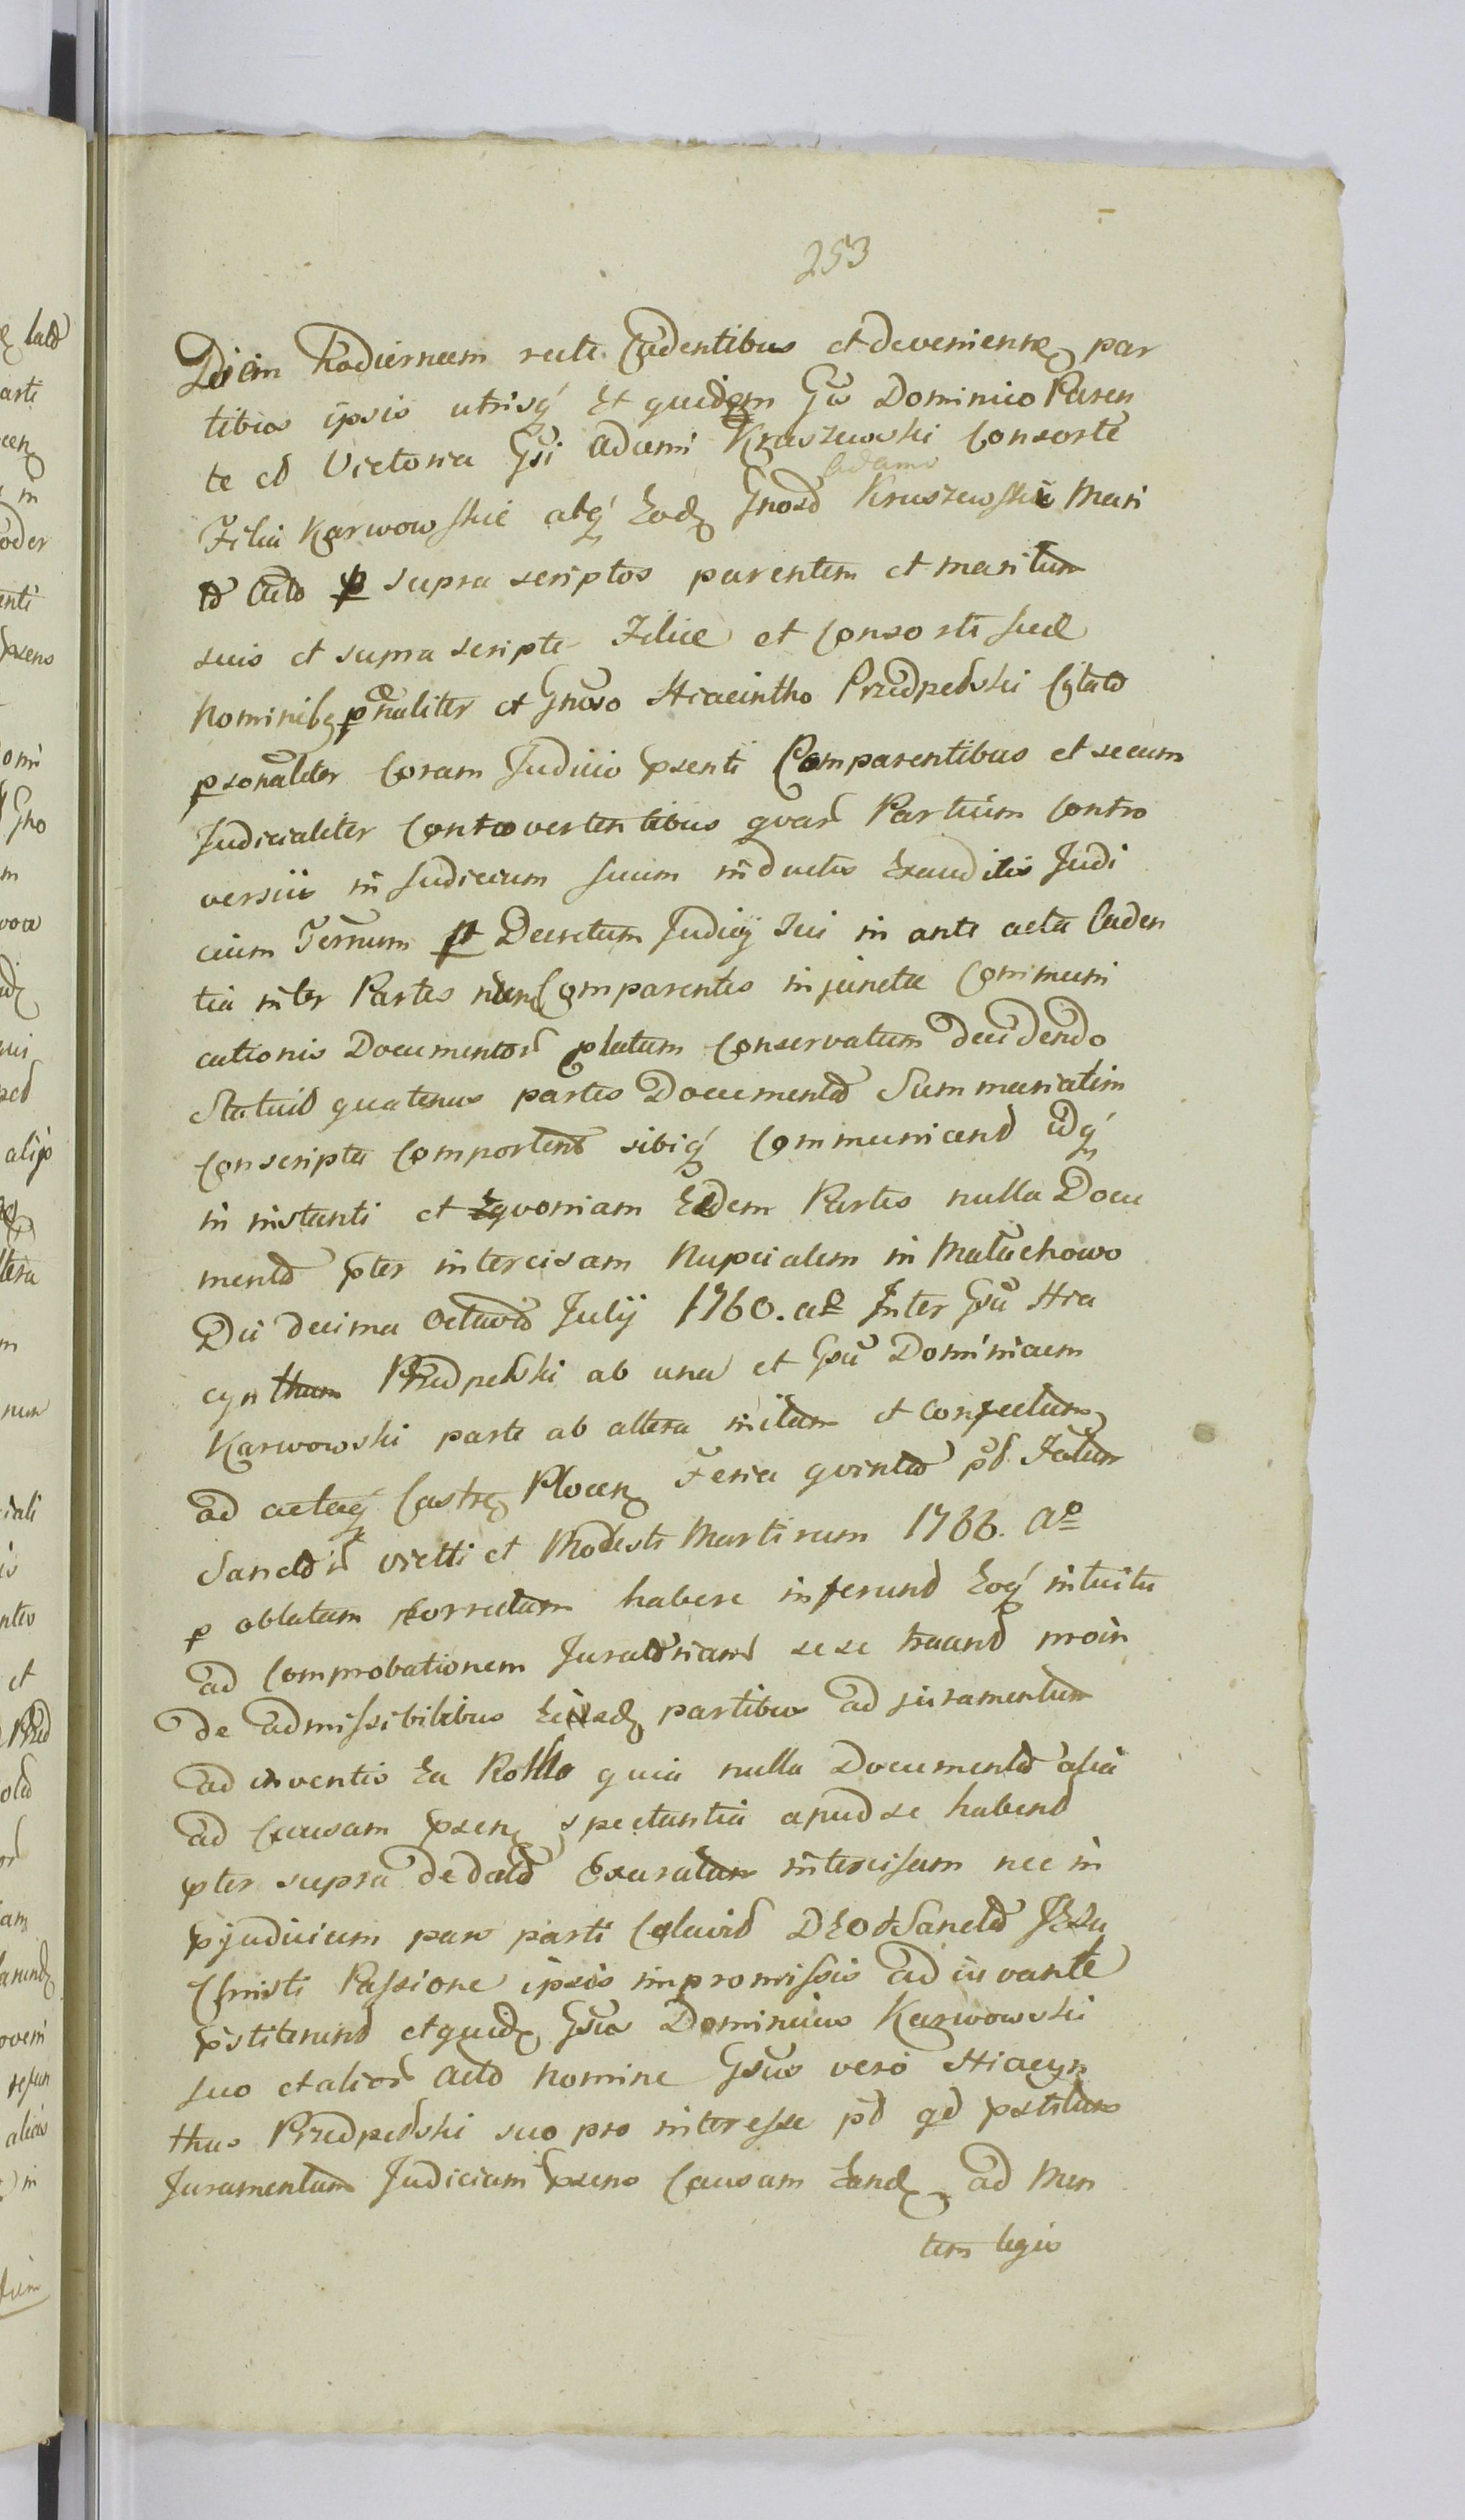 253
Diem hodiernum recte Cadentibus et devenienq par
tibus ipsis utrisq Et quidem Gso Dominico Paren
te et Victoria Gsi Adami Kraszewski Consorte
Adamo
Filia Karwowskie atq Eod Gnoso Kruszewski Mari
to Acto p supra scriptos parentem et maritum
suis et supra scripte Filiae et Consorti suae
Nominibq psonaliter et Gnoso Hiacintho Przedpełski Citato
psonaliter Coram Judicio psenti Comparentibus et secum
Judicialiter Controvertentibus quar Partium Contro
versiis in Judicium suum inductis Exauditis Judi
cium Ternum pt Decretum Judicij sui in ante acta Caden
tia inter Partes nunc Comparentes injuncta Communi
cationis Documentor platum Conservatum decidendo
Statuit quatenus partes Documenta Summariatim
Conscripta Comportent sibiq Communicent idq
in instanti et quoniam Eaedem Partes nulla Docu
menta pter intercisam Nupcialem in Małachowo
Die decima Octava July 1760. ao Inter Gsu Hia
cynthum Przedpełski ab una et Gsu Dominicum
Karwowski parte ab altera initam et confectam
ad actaq Castr Plocen Feria quinta pt Festum
Sanctor Vietti et Modesti Martirum 1766. Ao
p oblatam porrectam habere inferunt Eoq intuitu
ad Comprobationem Juratoriam sese traant proin
de admissibilibus Eised partibus ad juramentum
ad inventis Ea Rotha quia nulla Documenta alia
ad Causam psen spectantia apud se habent
pter supra de data Exaratam intercisam nec in
pjudicium pars parti Celavit DEO et Sancta JESu
Christi Passione ipsis impromissis adiuvante
pstiterunt et quid Gsus Dominicus Karwowski
suo et alior Acto nomine Gsus vero Hiacyn
thus Przedpełski suo pro interesse pt qd pstitum
Juramentum Judicium psens Causam Eand ad Men
tem legis